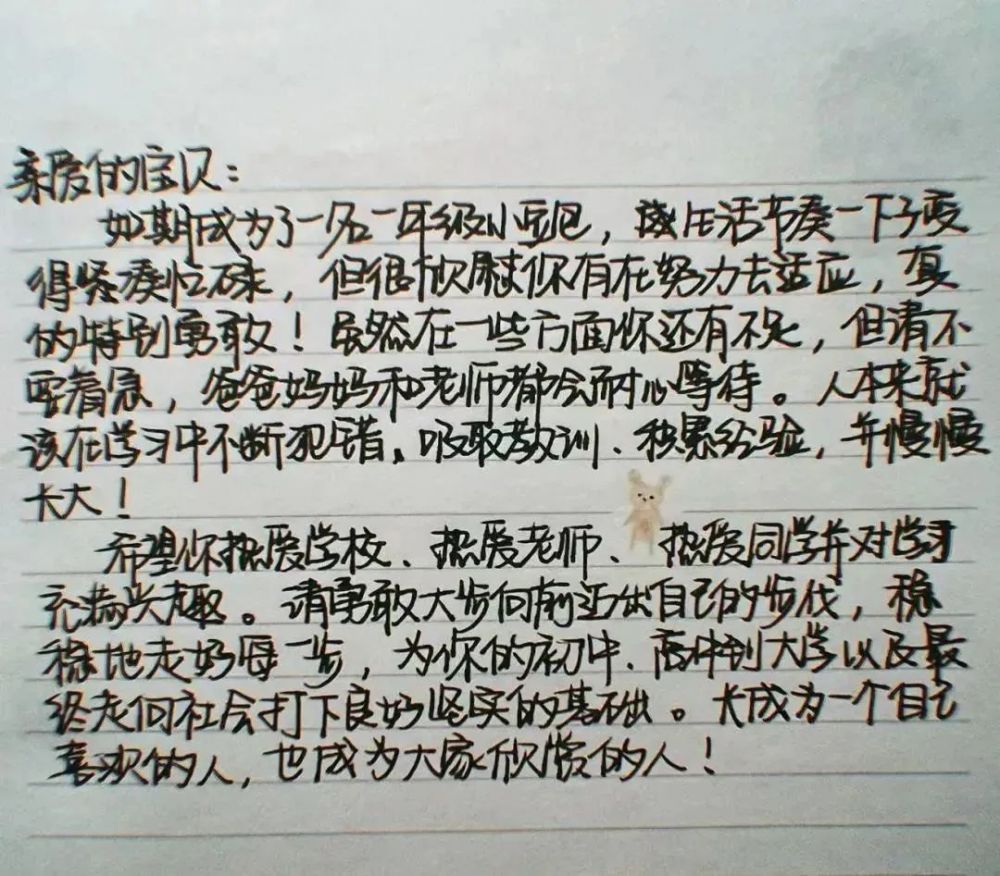 亲爱的宝贝：
如期成为了一名一年级小豆包，感生活节奏一下子变
得紧凑忙碌，但很欣慰你有在努力去适应，真
的特别勇敢！虽然在一些方面你还有不足，但请不
要着急，爸爸妈妈和老师都会耐心等待。人本来就
该在学习中不断犯错、吸取教训、积累经验，并慢慢
长大！
希望你热爱学校、热爱老师、热爱同学并对学习
充满兴趣。请勇敢大步向前迈出自己的步伐，稳
稳地走好每一步，为你的初中、高中到大学以及最
终走向社会打下良好坚实的基础。长成为一个自己
喜欢的人，也成为大家欣赏的人！